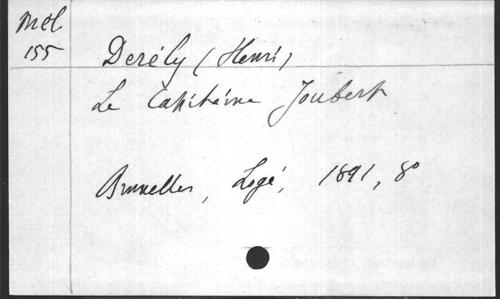 Mél
155
Derély (Henri)
Le Capitaine Joubert
Bruxelles, Logé, 1891, 8°